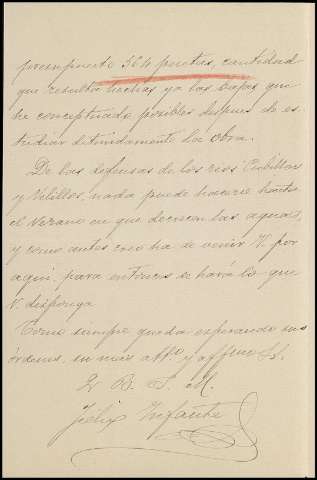 presupuesto 564 pesetas, cantidad
que resulta hechas ya las bajas que
he conceptuado posibles despues de es-
tudiar detenidamente la obra.
De las defensas de los rios Cubillas
y Velillos, nada puede hacerse hasta
el Verano en que decrecen las aguas,
y como antes creo ha de venir V. por
aqui, para entonces se hará lo que
V. disponga
Como siempre queda esperando sus
órdenes, su mas atto. y affmo S.S.
Q. B. S. M.
Félix Infante